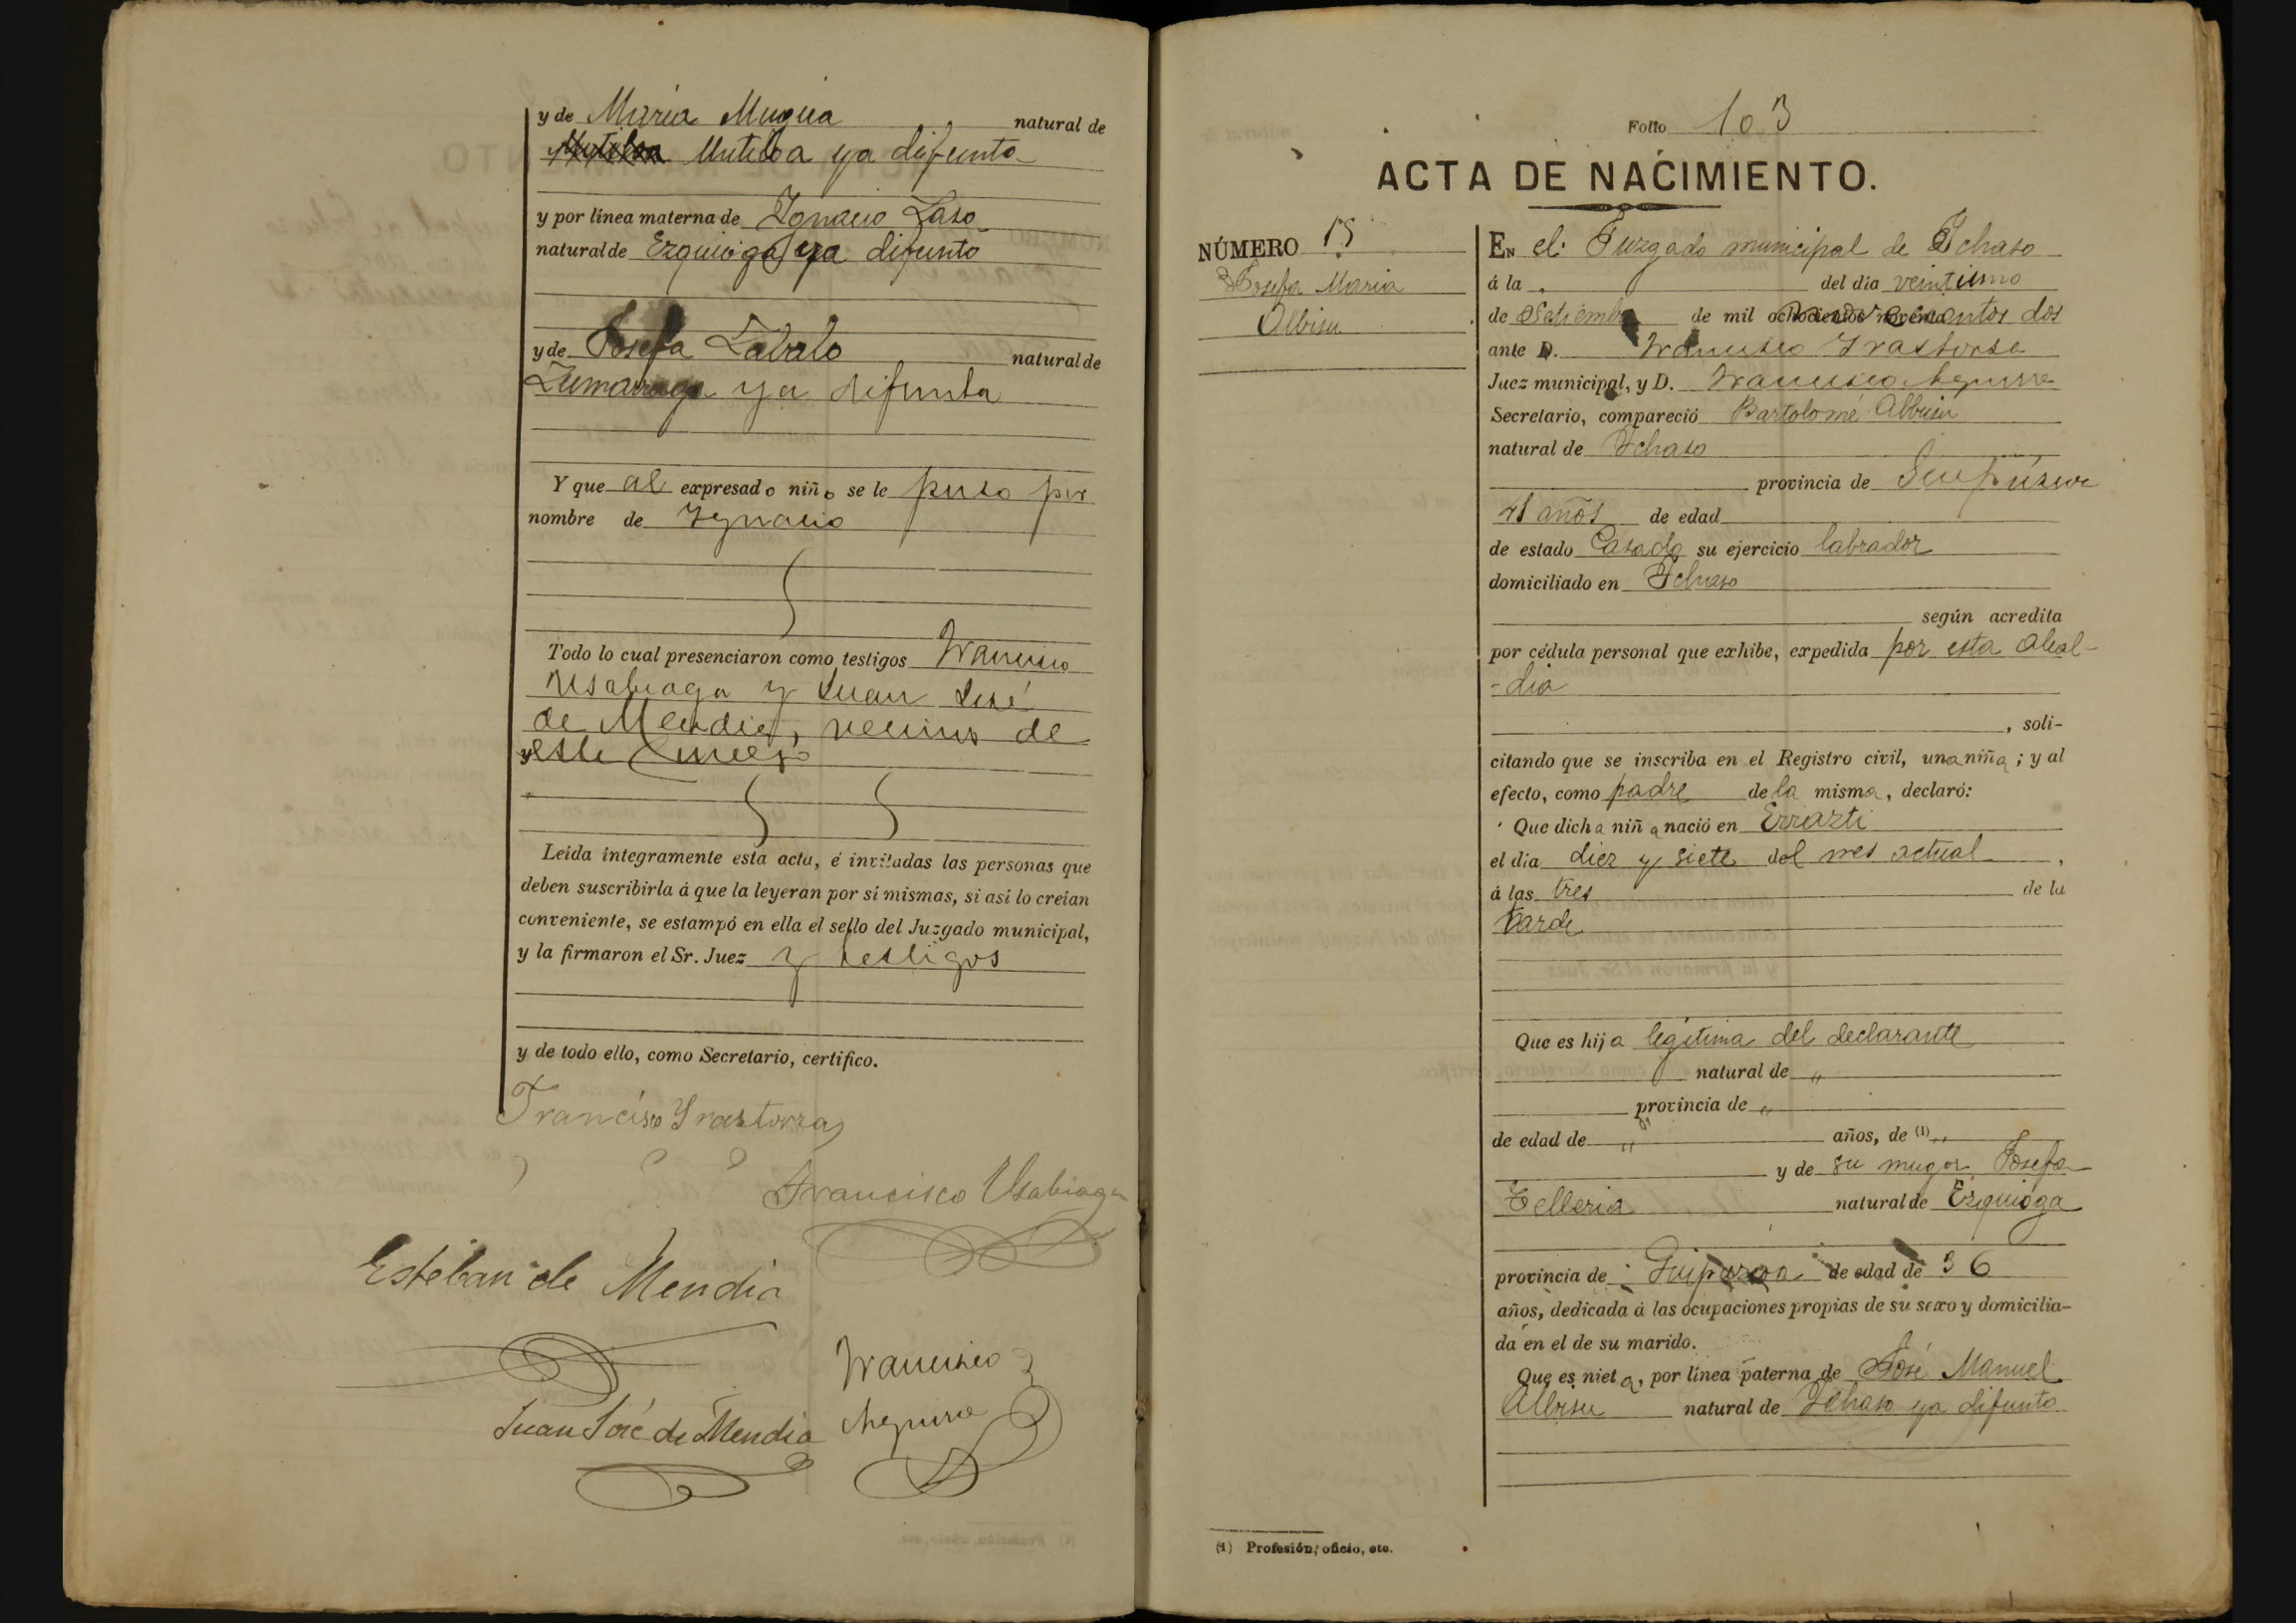 y de María Mugica natural de
Mutiloa Mutiloa ya difunto
y por línea materna de Ignacio Laso
natural de Ezquioga ya difunto
y de Josefa Zabalo natural de
Zumarraga ya difunta
Y que al expresado niño se le puso por
nombre de Ygnacio
Todo lo cual presenciaron como testigos Francisco
Usabiaga y Juan José
de Mendia, vecinos de
este Concejo
Leída íntegramente esta acta, é invitadas las personas que
deben suscribirla á que la leyeran por sí mismas, si así lo creían
conveniente, se estampó en ella el sello del Juzgado municipal,
y la firmaron el Sr. Juez y testigos
y de todo ello, como Secretario, certifico.
Francisco Yrastorza
Francisco Usabiaga
Esteban de Mendia
Francisco
Juan José de Mendia Aguirre
Folio 103
ACTA DE NACIMIENTO.
NÚMERO 15
Josefa Maria
Albisu
EN el Juzgado municipal de Ichaso
á la del dia veintiuno
de Setiembre de mil novecientos dos
ante D. Francisco Yrastorza
Juez municipal, y D. Francisco Aguirre
Secretario, compareció Bartolomé Albisu
natural de Ichaso
provincia de Guipúzcoa
41 años de edad
de estado Casado su ejercicio labrador
domiciliado en Ichaso
según acredita
por cédula personal que exhibe, expedida por esta Alcal-
-dia
, soli-
citando que se inscriba en el Registro civil, una niña; y al
efecto, como padre de la misma, declaró:
Que dicha niña nació en Errazti
el dia diez y siete del mes actual,
á las tres de la
tarde
Que es hija legítima del declarante
natural de "
provincia de "
de edad de " años, de (1) "
y de su muger Josefa
Telleria natural de Ezquioga
provincia de Guipuzcoa de edad de 36
años, dedicada á las ocupaciones propias de su sexo y domicilia-
da en el de su marido.
Que es nieta, por línea paterna de José Manuel
Albisu natural de Ichaso ya difunto
(1) Profesión, oficio, etc.